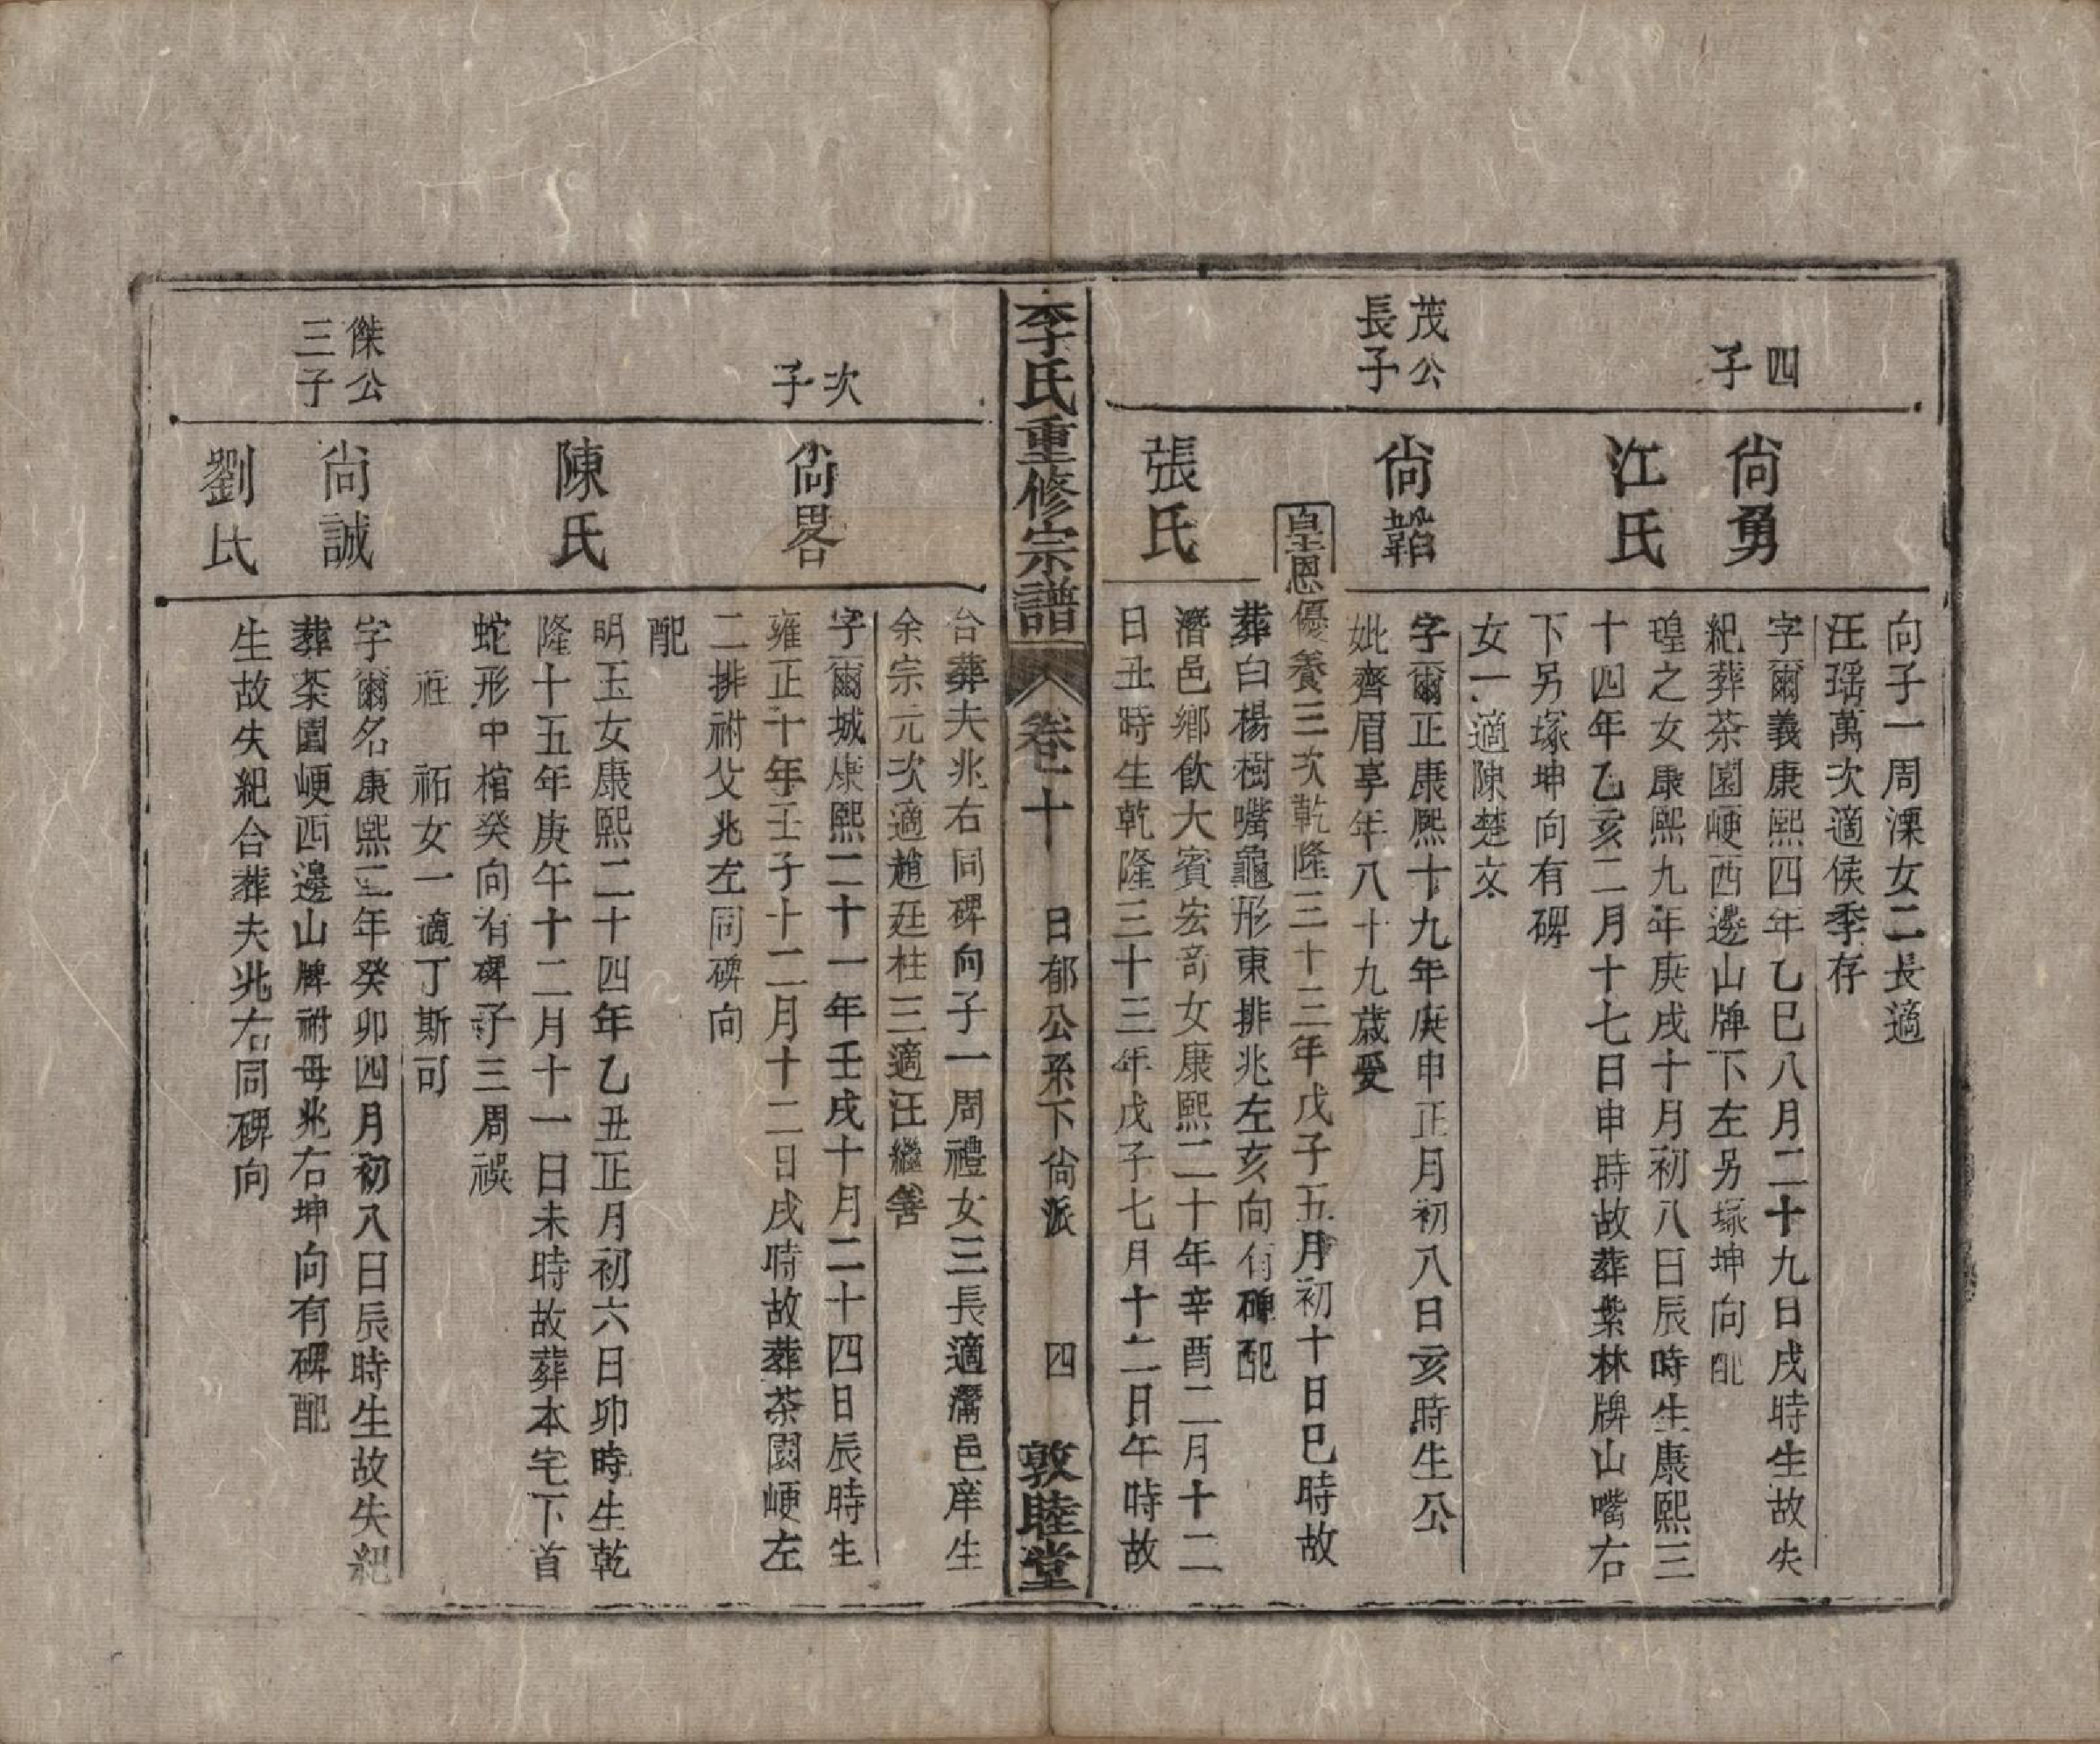 向子一周溧女二長適
汪瑤萬次適侯季存
四
子
尚勇
字爾義康熙四年乙巳八月二十九日戌時生故失
紀葬茶園崾西邊山牌下左另塚坤向配
江氏
瑝之女康熙九年庚戌十月初八日辰時生康熙三
十四年乙亥二月十七日申時故葬紫林牌山嘴右
下另塚坤向有碑
女一適陳楚文
茂公
長子
尚韜
字爾正康熙十九年庚申正月初八日亥時生公
妣齊眉享年八十九歲受
皇恩優養三次乾隆三十三年戊子五月初十日巳時故
葬白楊樹嘴龜形東排兆左亥向有碑配
張氏
潛邑鄉飲大賓宏奇女康熙二十年辛酉二月十二
日丑時生乾隆三十三年戊子七月十二日午時故
李氏重修宗譜
卷十
日郁公系下尚派
四
敦睦堂
台葬夫兆右同碑向子一周禮女三長適潛邑庠生
余宗元次適趙廷柱三適汪繼善
次
子
尚畧
字爾城康熙二十一年壬戌十月二十四日辰時生
雍正十年壬子十二月十二日戌時故葬茶園崾左
二排祔父兆左同碑向
配
陳氏
明玉女康熙二十四年乙丑正月初六日卯時生乾
隆十五年庚午十二月十一日未時故葬本宅下首
蛇形中棺癸向有碑子三周祦
祍 祏女一適丁斯可
傑公
三子
尚誠
字爾名康熙二年癸卯四月初八日辰時生故失紀
葬茶園崾西邊山牌祔母兆右坤向有碑配
劉氏
生故失紀合葬夫兆右同碑向